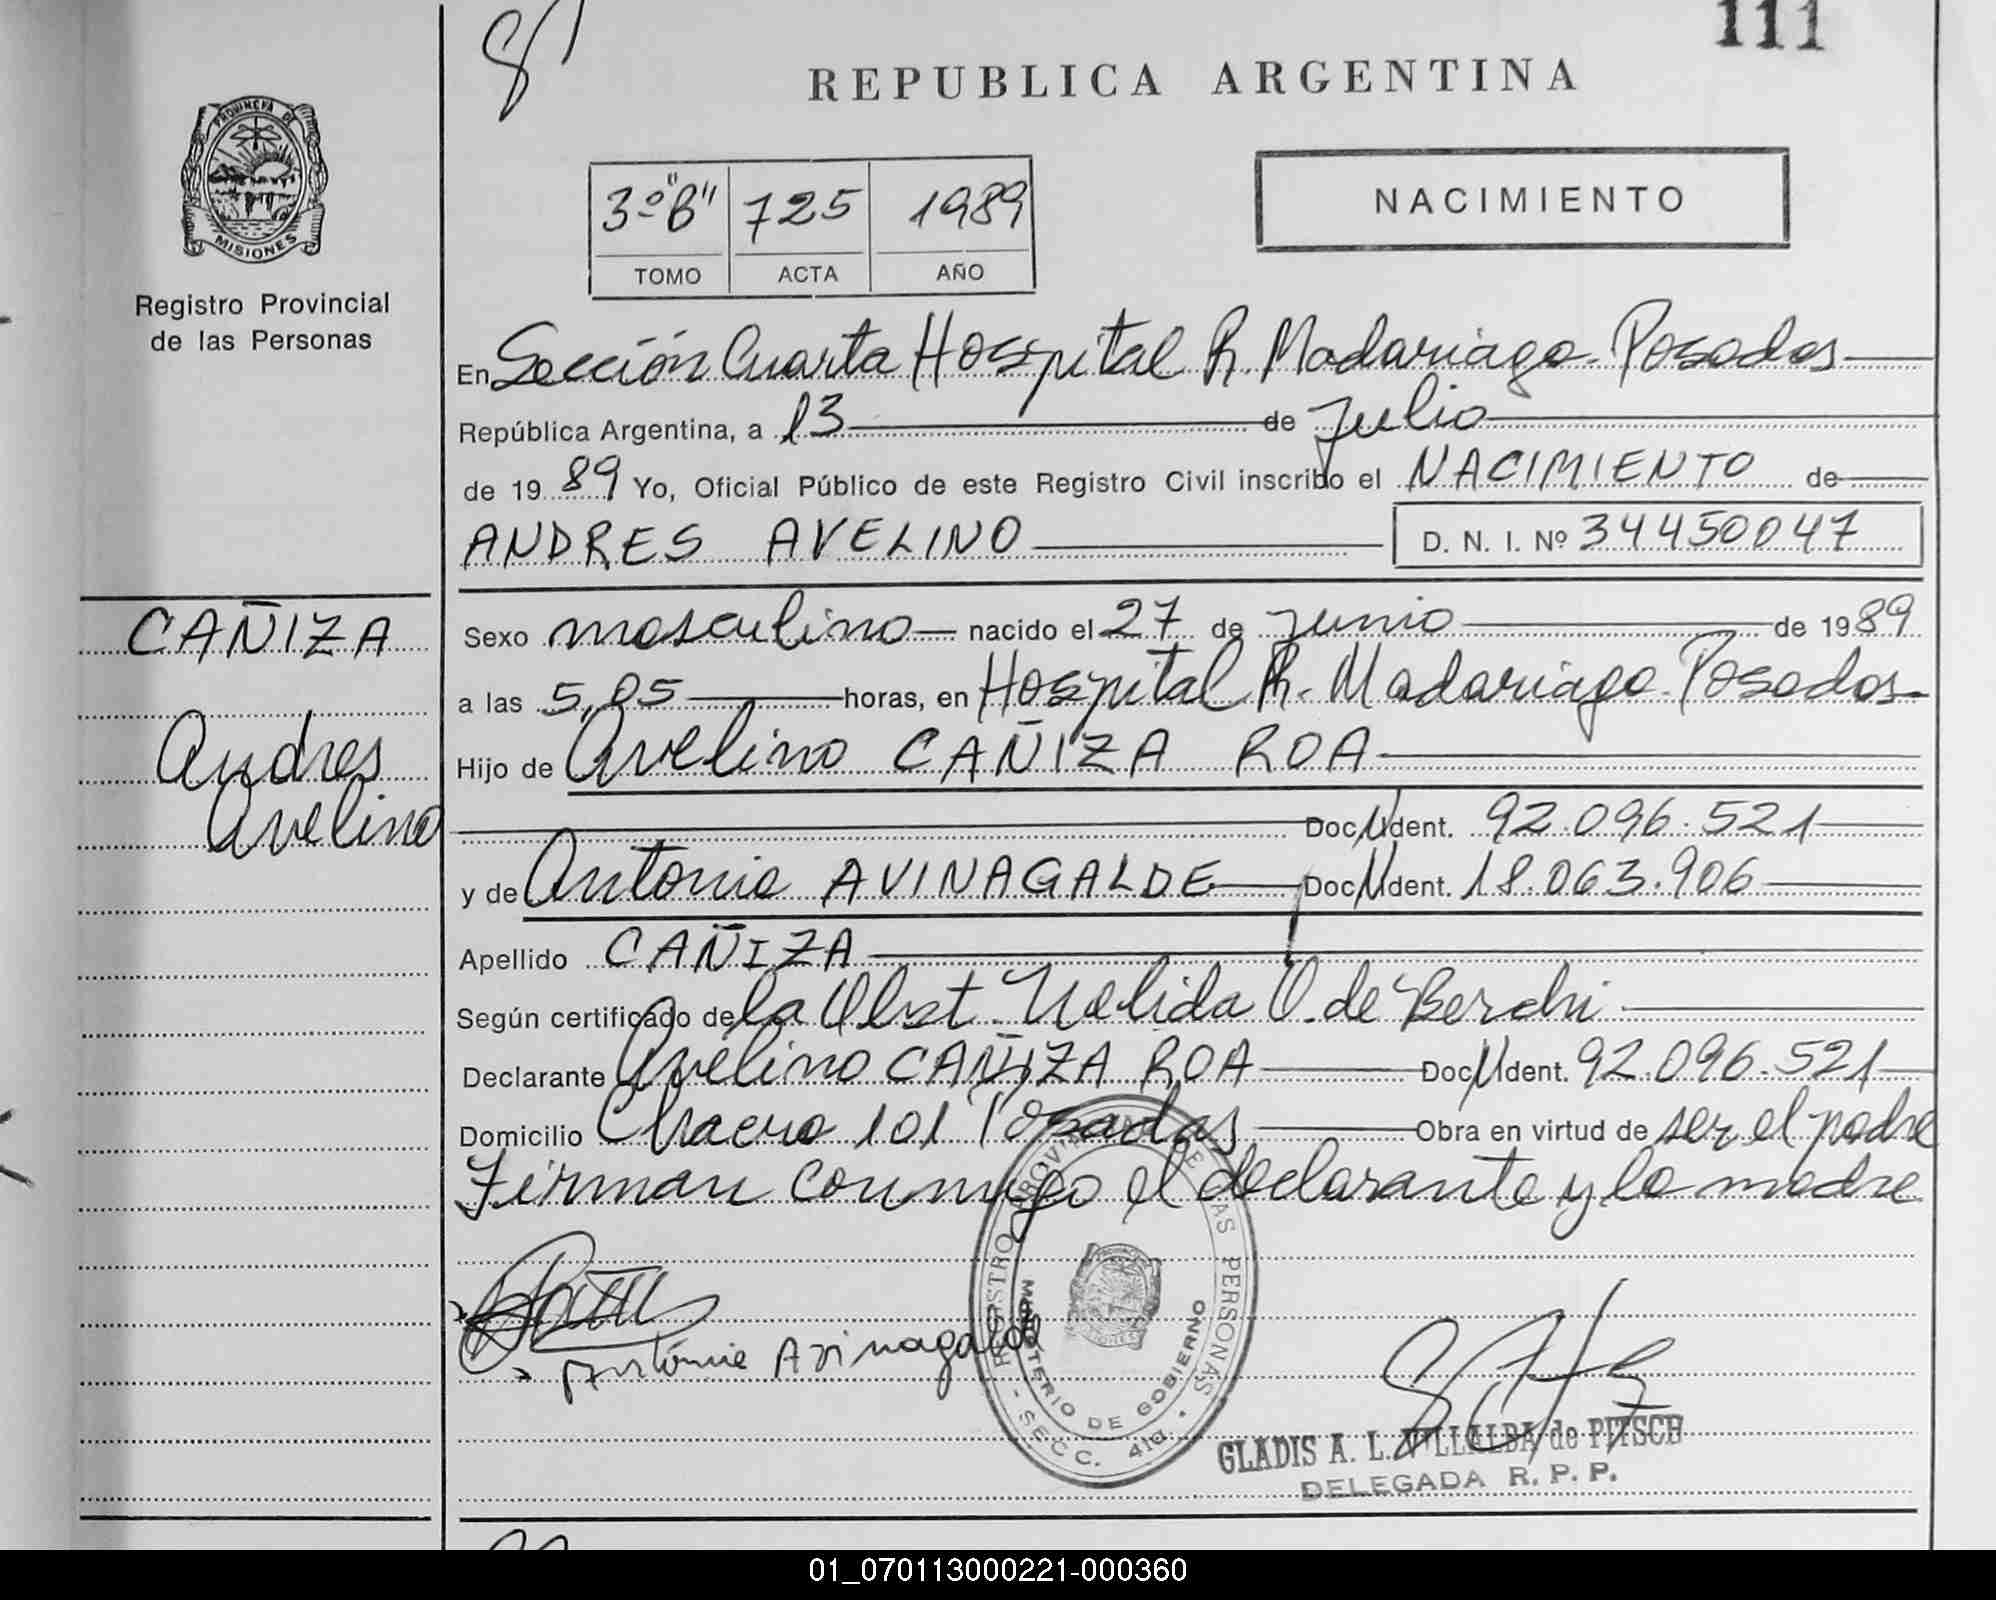 111
REPUBLICA ARGENTINA
PROVINCIA DE
MISIONES
Registro Provincial
de las Personas
3º"B" 725 1989
TOMO ACTA AÑO
NACIMIENTO
En Sección Cuarta Hospital R. Madariaga. Posadas
República Argentina, a 13 de Julio
de 1989 Yo, Oficial Público de este Registro Civil inscribo el NACIMIENTO de
ANDRES AVELINO D. N. I. Nº 34450047
CAÑIZA
Andres
Avelino
Sexo masculino nacido el 27 de junio de 1989
a las 5,05 horas, en Hospital R. Madariaga. Posadas
Hijo de Avelino CAÑIZA ROA
Doc. Ident. 92.096.521
y de Antonia AVINAGALDE Doc. Ident. 18.063.906
Apellido CAÑIZA
Según certificado de la Obst. Nelida O. de Berchi
Declarante Avelino CAÑIZA ROA Doc. Ident. 92.096.521
Domicilio Chacra 101 Posadas Obra en virtud de ser el padre
Firman conmigo el declarante y la madre
Antonia Avinagalde
REGISTRO PROVINCIAL DE LAS PERSONAS
MINISTERIO DE GOBIERNO
- SECC. 4ta. -
GLADIS A. L. VILLALBA de PITSCH
DELEGADA R. P. P.
01_070113000221-000360